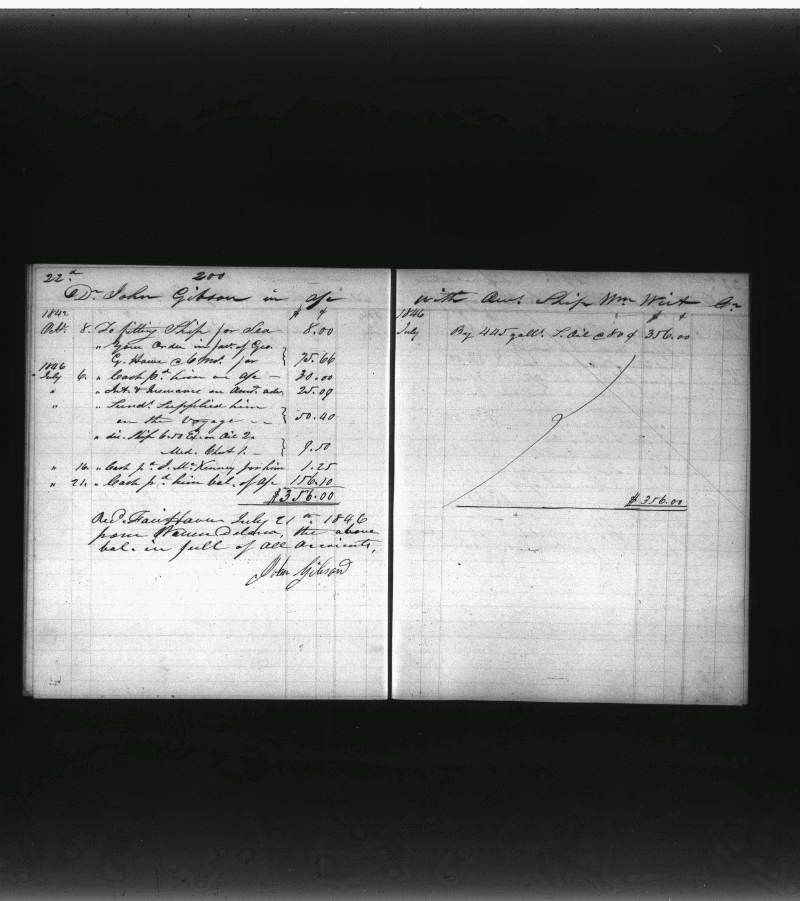 22d 200
Dr. John Gibson in a/c
1842 $ ¢
Octr. 8. To fitting Ship for Sea 8.00
" Your Order in part of Geo.
G. Howe & C for 75.66
1846
July 6. " Cash pd. him on a/c — 30.00
" " Int. & Insurance on Amt. adv. 25.09
" " Sunds. Supplied him
on the Voyage -- 50.40
" dis. Ship 6.50 Oil 2-
Med. Chest 1.- 9.50
" 16. " Cash pd. J. McKenny for him 1.25
" 21. " Cash pd. him bal. of a/c 156.10
$356.00
Recd. FairHaven July 21st. 1846
from Warren Delano, the above
bal. in full of all accounts,
John Gibson
with Ship Wm. Wirt Cr.
1846 $ ¢
July By 445 galls. S. Oil @ 80¢ 356.00
$356.00